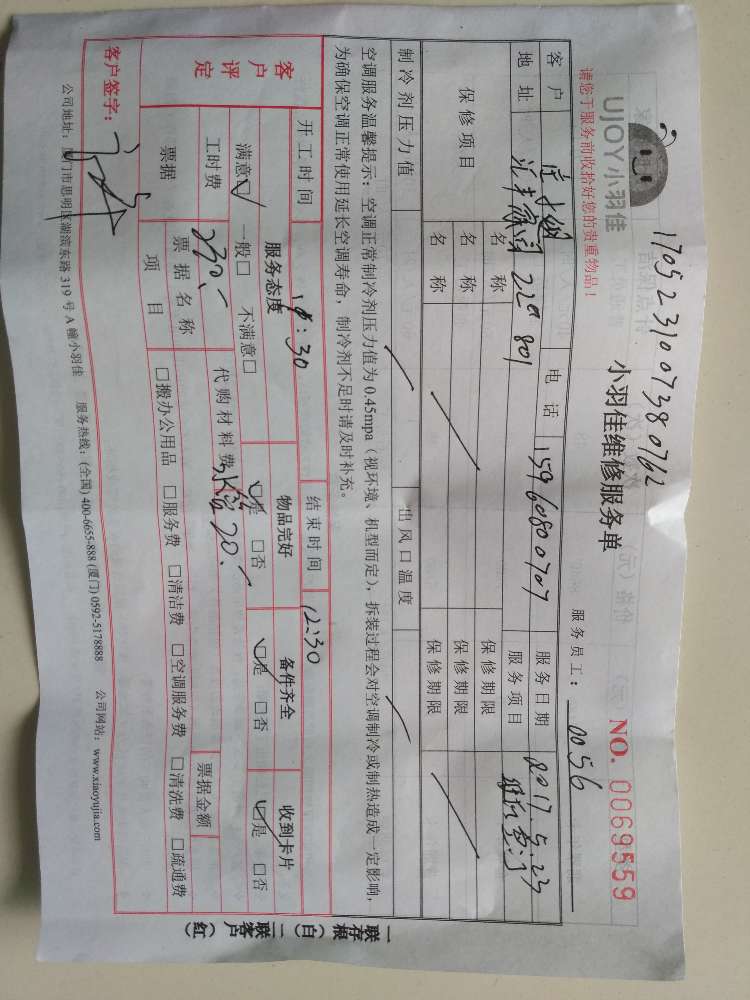 1705231007380762
UJOY小羽佳
小羽佳维修服务单
NO. 0069559
请您于服务前收拾好您的贵重物品！
服务员工： 0056
客户 电话 15960800707 服务日期 2017.5.23
地址 229 801 服务项目
保修项目 名称 保修期限
名称 保修期限
名称 保修期限
制冷剂压力值 出风口温度
空调服务温馨提示：空调正常制冷剂压力值为0.45mpa（视环境、机型而定），拆装过程会对空调制冷或制热造成一定影响，
为确保空调正常使用延长空调寿命，制冷剂不足时请及时补充。
开工时间 :30 结束时间 12:30
客户评定 服务态度 物品完好 备件齐全 收到卡片
满意☑ 一般□ 不满意□ ☑是 □否 ☑是 □否 ☑是 □否
工时费 230.- 代购材料费 20.-
票据 票据名称 票据金额
项目 □搬办公用品 □服务费 □清洁费 □空调服务费 □清洗费 □疏通费
客户签字：
公司地址：厦门市思明区湖滨东路319号A幢小羽佳 服务热线：(全国) 400-6655-888 (厦门) 0592-5178888 公司网站：www.xiaoyujia.com
一联存根（白） 二联客户（红）